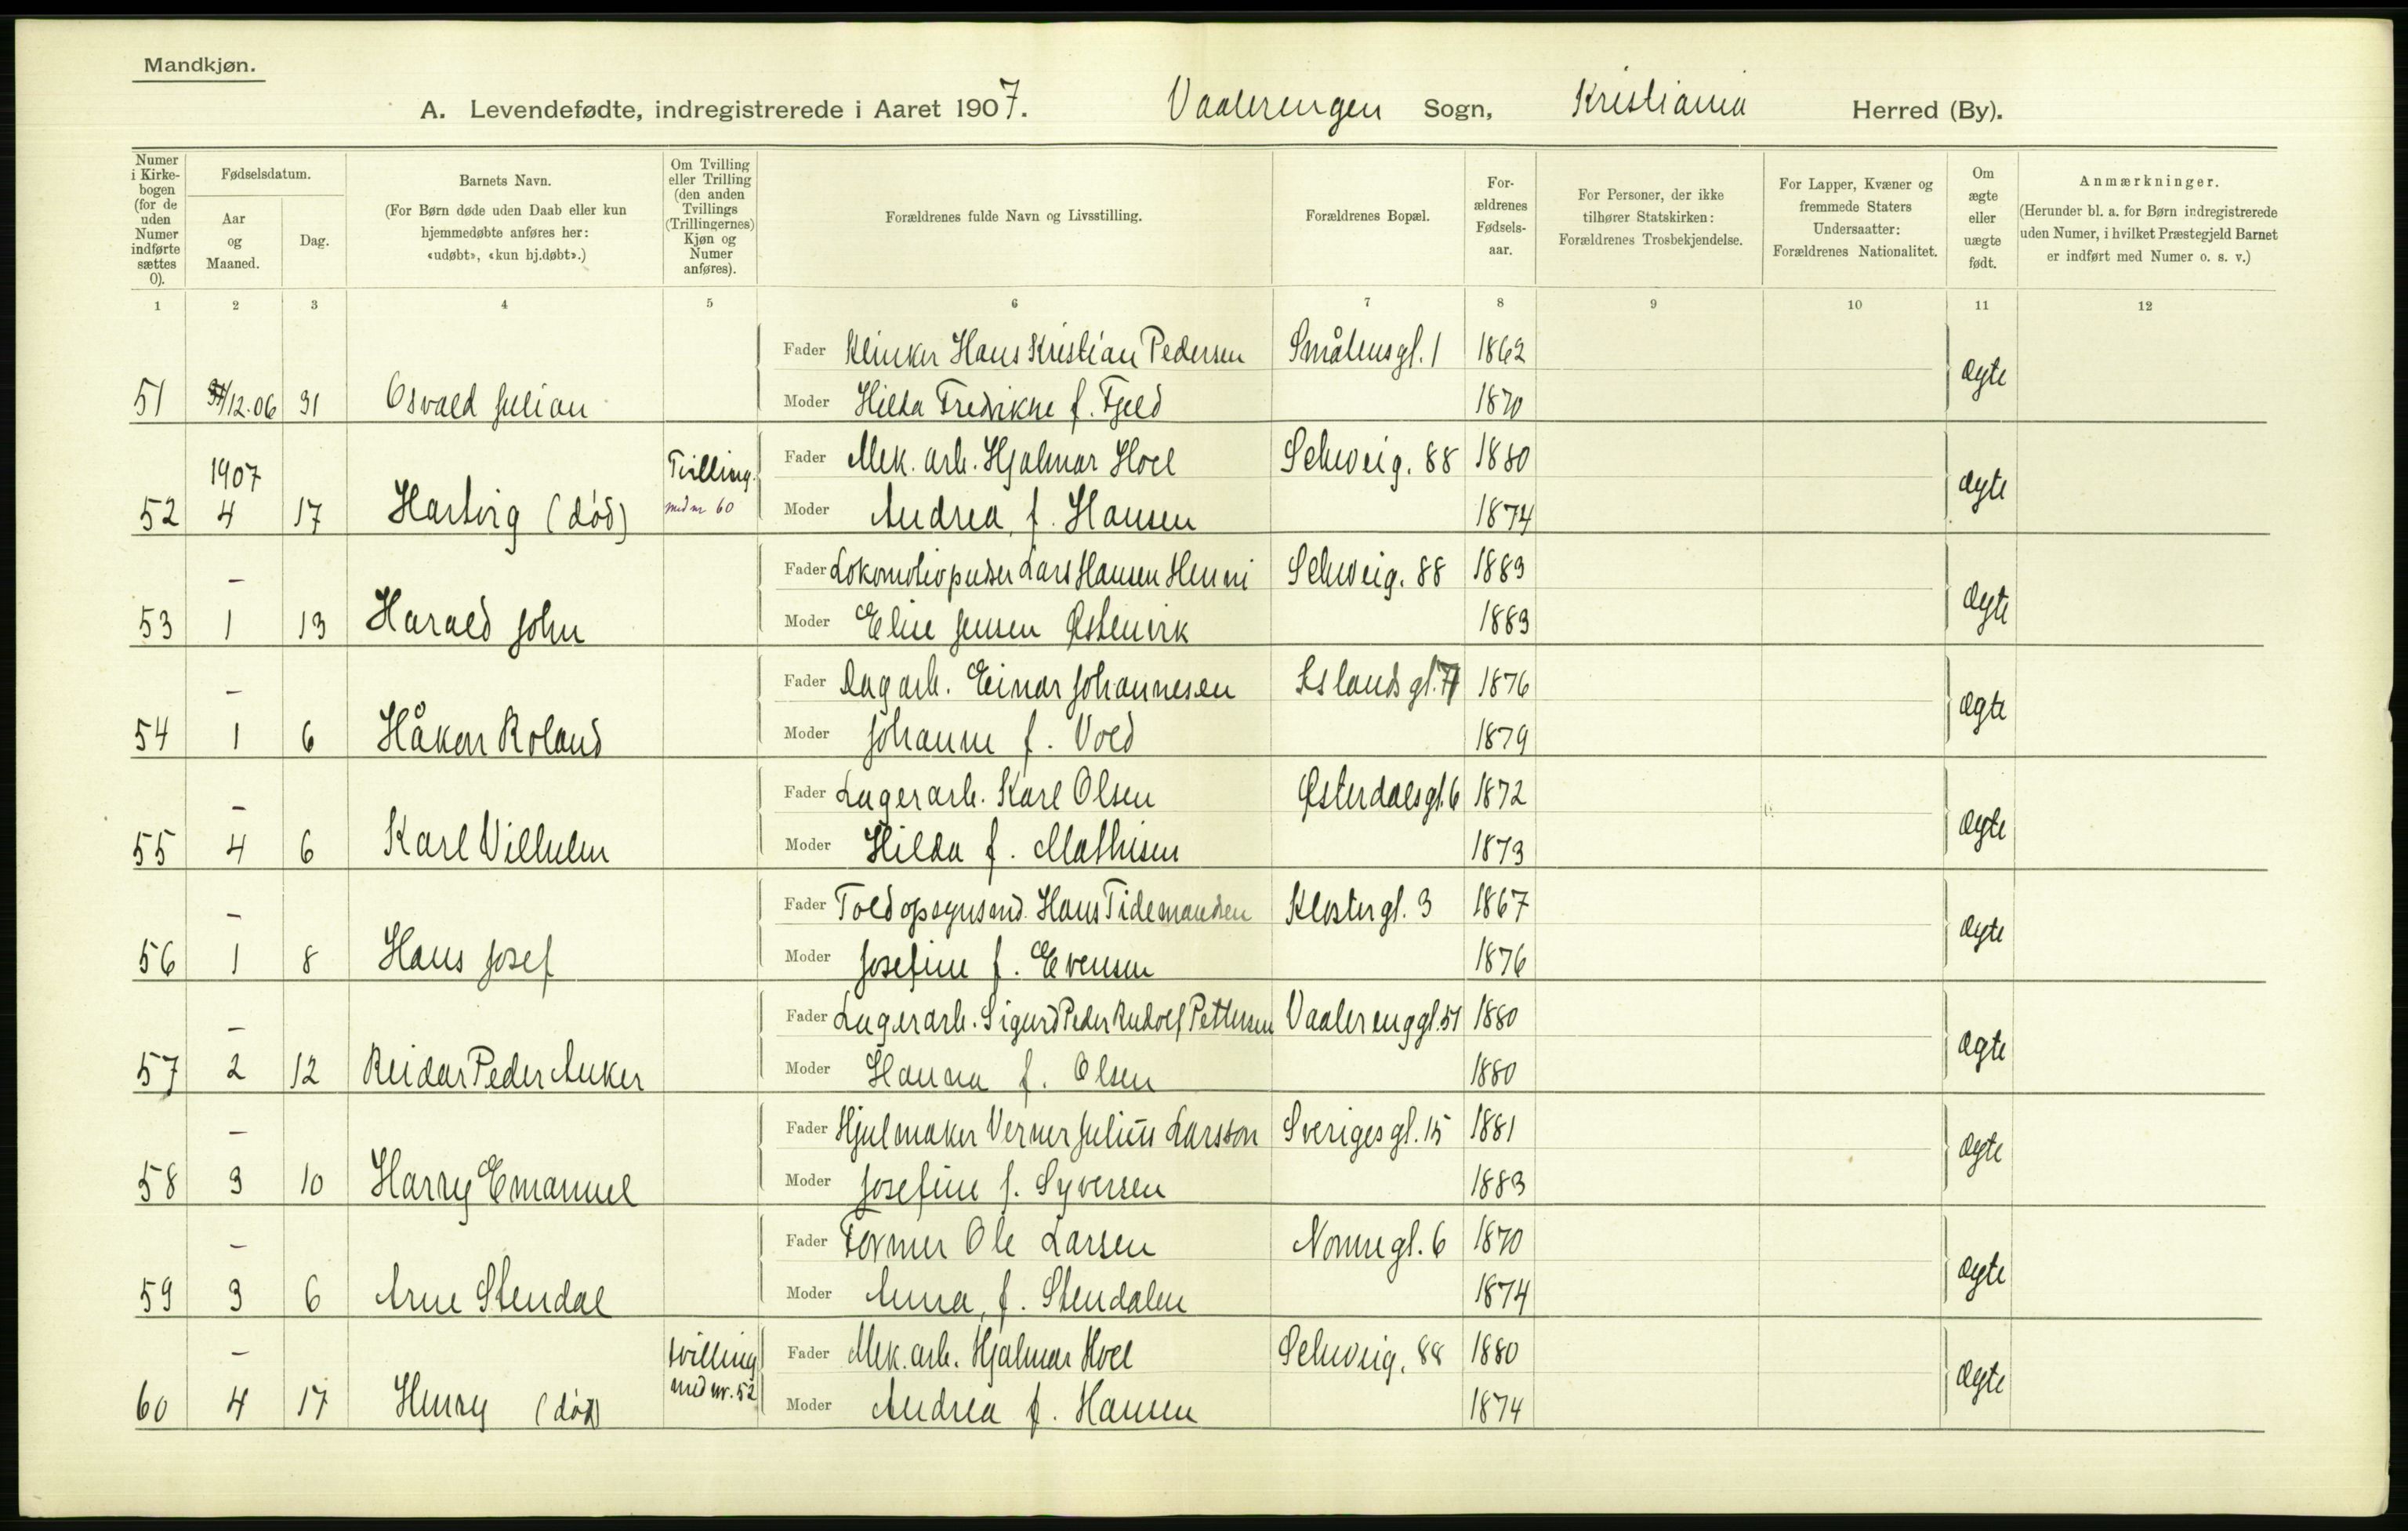 Mandkjøn.
A. Levendefødte, indregistrerede i Aaret 1907. Vaalerengen Sogn, Kristiania Herred (By).
Numer i Kirkebogen (for de uden Numer indførte sættes 0).
Fødselsdatum.
Aar og Maaned.
Dag.
Barnets Navn.
(For Børn døde uden Daab eller kun
hjemmedøbte anføres her:
«udøbt», «kun hj.døbt».)
Om Tvilling eller Trilling (den anden Tvillings (Trillingernes) Kjøn og Numer anføres).
Forældrenes fulde Navn og Livsstilling.
Forældrenes Bopæl.
For-
ældrenes
Fødsels-
aar.
For Personer, der ikke
tilhører Statskirken:
Forældrenes Trosbekjendelse.
For Lapper, Kvæner og
fremmede Staters
Undersaatter:
Forældrenes Nationalitet.
Om
ægte
eller
uægte
født.
Anmærkninger.
(Herunder bl. a. for Børn indregistrerede
uden Numer, i hvilket Præstegjeld Barnet
er indført med Numer o. s. v.)
1 2 3 4 5 6 7 8 9 10 11 12
Fader Klinker Hans Kristian Pedersen Smålensgt. 1 1862
51 /12.06 31 Osvald Julian Moder Hilda Fredrikke f. Fjeld 1870 ægte
1907 Tvilling Fader Mek. arb. Hjalmar Hoel Schweig. 88 1880
52 4 17 Hartvig (død) med nr 60 Moder Andrea f. Hansen 1874 ægte
– Fader Lokomotivpudser Lars Hansen Henni Schweig. 88 1883
53 1 13 Harald John Moder Eline Jensen 1883 ægte
– Fader Dagarb. Einar Johannesen Islandsgt. 1876
54 1 6 Håkon Roland Moder Johanne f. Vold 1879 ægte
– Fader Lagerarb. Karl Olsen Østerdalsgt. 6 1872
55 4 6 Karl Vilhelm Moder Hilda f. Mathisen 1873 ægte
– Fader Toldopsynsmd. Hans Tidemandsen Klostergt. 3 1867
56 1 8 Hans Josef Moder Josefine f. Evensen 1876 ægte
– Fader Lagerarb. Sigurd Peder Rudolf Pettersen Vaalerenggt. 51 1880
57 2 12 Reidar Peder Anker Moder Hanna f. Olsen 1880 ægte
– Fader Hjulmaker Verner Julius Larsson Sverigesgt. 15 1881
58 3 10 Harry Emanuel Moder Josefine f. Syversen 1883 ægte
– Fader Former Ole Larsen Nonnegt. 6 1870
59 3 6 Arne Stendal Moder Anna, f. Stendalen 1874 ægte
– tvilling Fader Mek. arb. Hjalmar Hoel Schweig. 88 1880
60 4 17 Henry (død) med nr. 52 Moder Andrea f. Hansen 1874 ægte